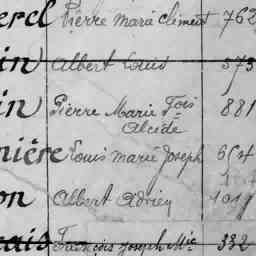 erel Pierre Marie Clément 762
in Albert Louis 573
in Pierre Marie Fois 881
Alcide
nière Louis Marie Joseph 654
on Albert Adrien 1019
rais François Joseph Mie 332